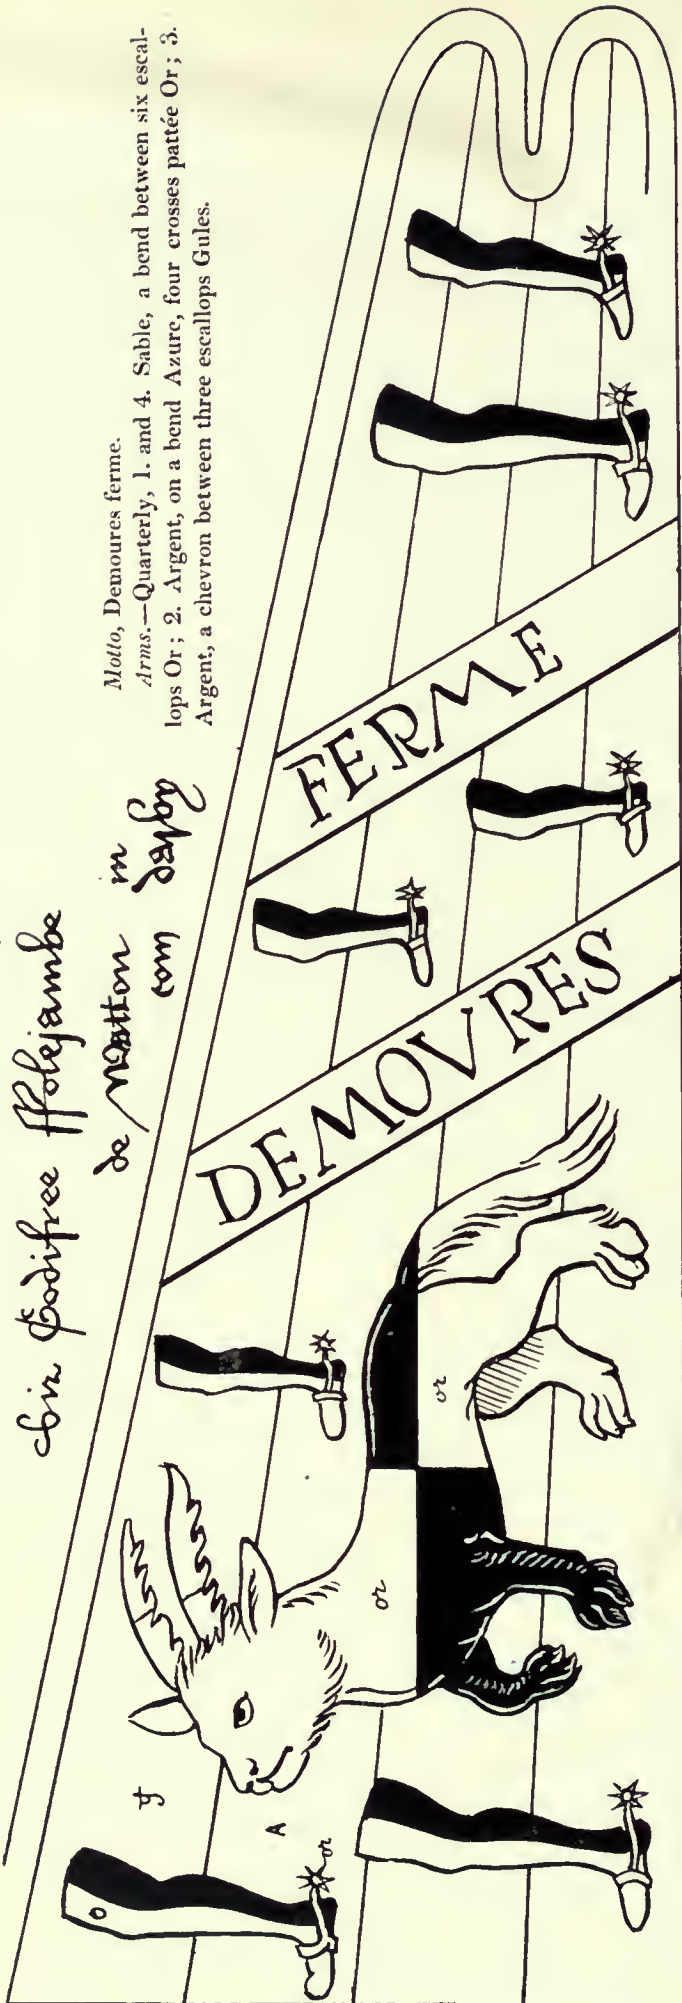 Sir Godifree ffolejambe
de Walton in
com Darby
Motto, Demoures ferme.
Arms.—Quarterly, 1. and 4. Sable, a bend between six escal-
lops Or; 2. Argent, on a bend Azure, four crosses pattée Or; 3.
Argent, a chevron between three escallops Gules.
A
or
or
or
o
DEMOVRES
FERME